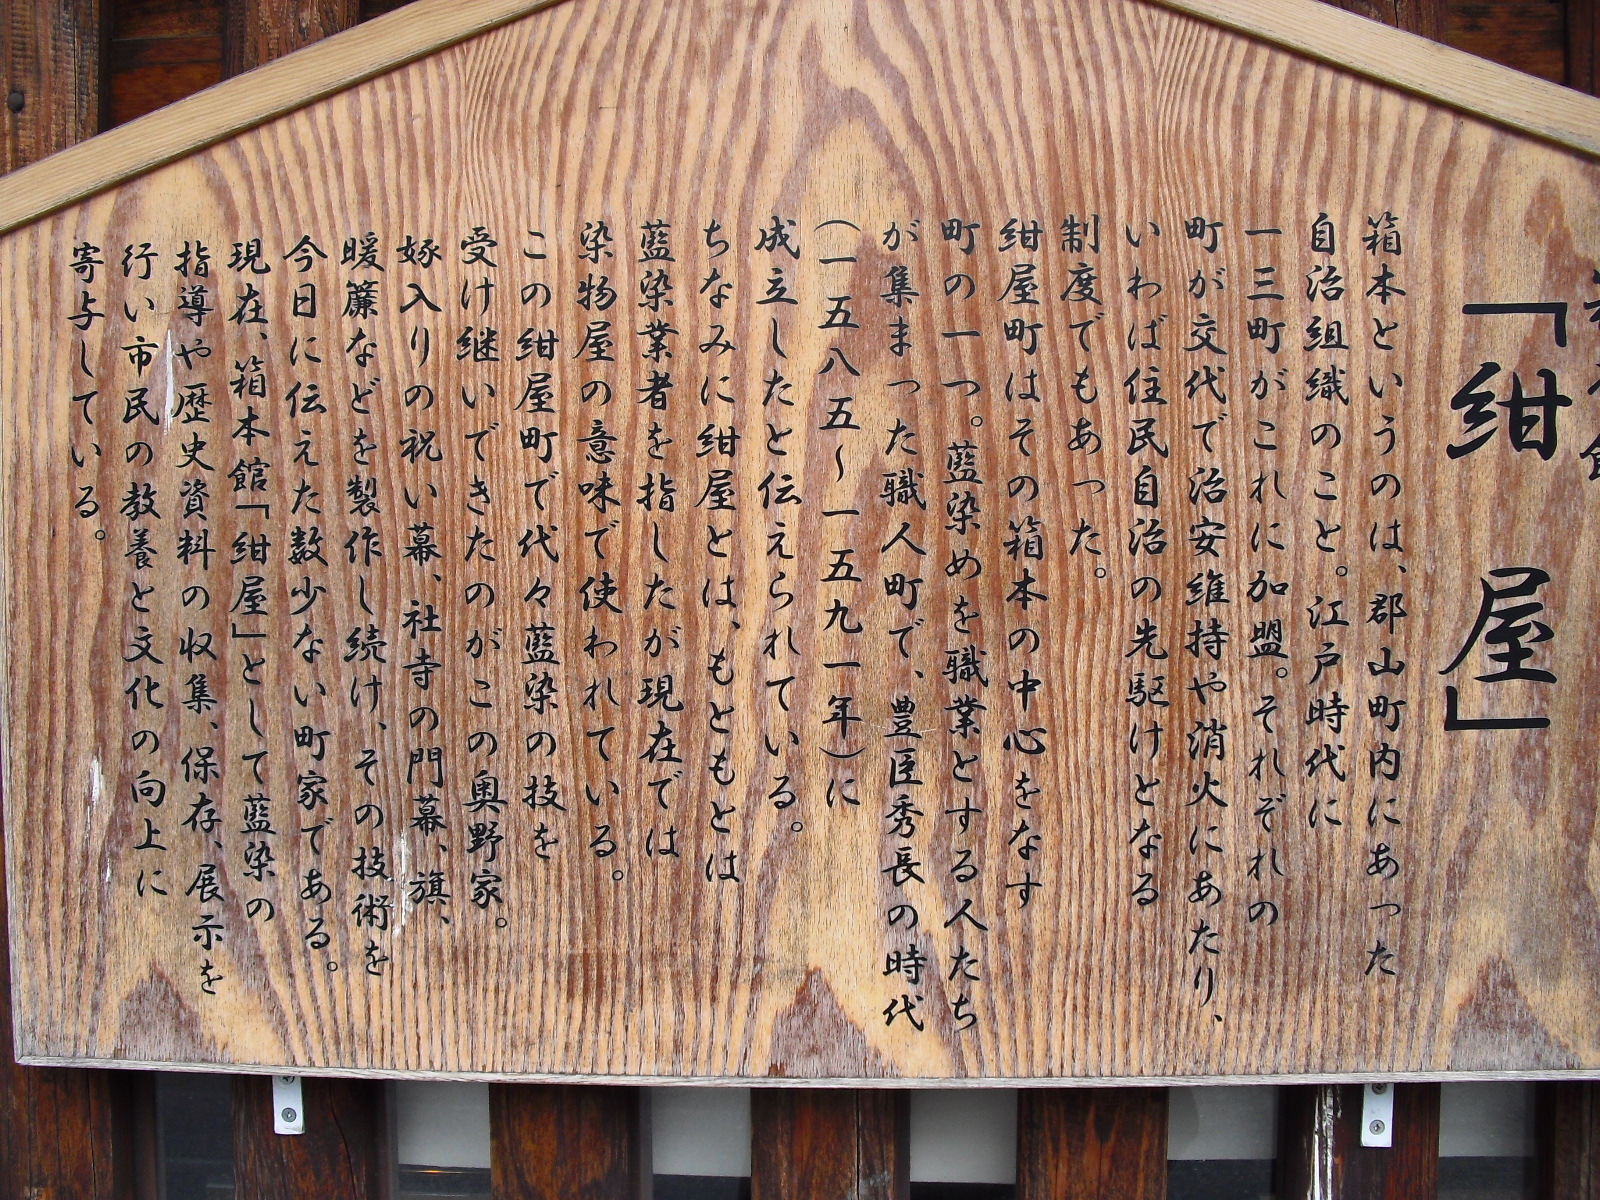 「紺屋」
箱本というのは、郡山町内にあった
自治組織のこと。江戸時代に
一三町がこれに加盟。それぞれの
町が交代で治安維持や消火にあたり、
いわば住民自治の先駆けとなる
制度でもあった。
紺屋町はその箱本の中心をなす
町の一つ。藍染めを職業とする人たち
が集まった職人町で、豊臣秀長の時代
（一五八五〜一五九一年）に
成立したと伝えられている。
ちなみに紺屋とは、もともとは
藍染業者を指したが現在では
染物屋の意味で使われている。
この紺屋町で代々藍染の技を
受け継いできたのがこの奥野家。
嫁入りの祝い幕、社寺の門幕、旗、
暖簾などを製作し続け、その技術を
今日に伝えた数少ない町家である。
現在、箱本館「紺屋」として藍染の
指導や歴史資料の収集、保存、展示を
行い市民の教養と文化の向上に
寄与している。